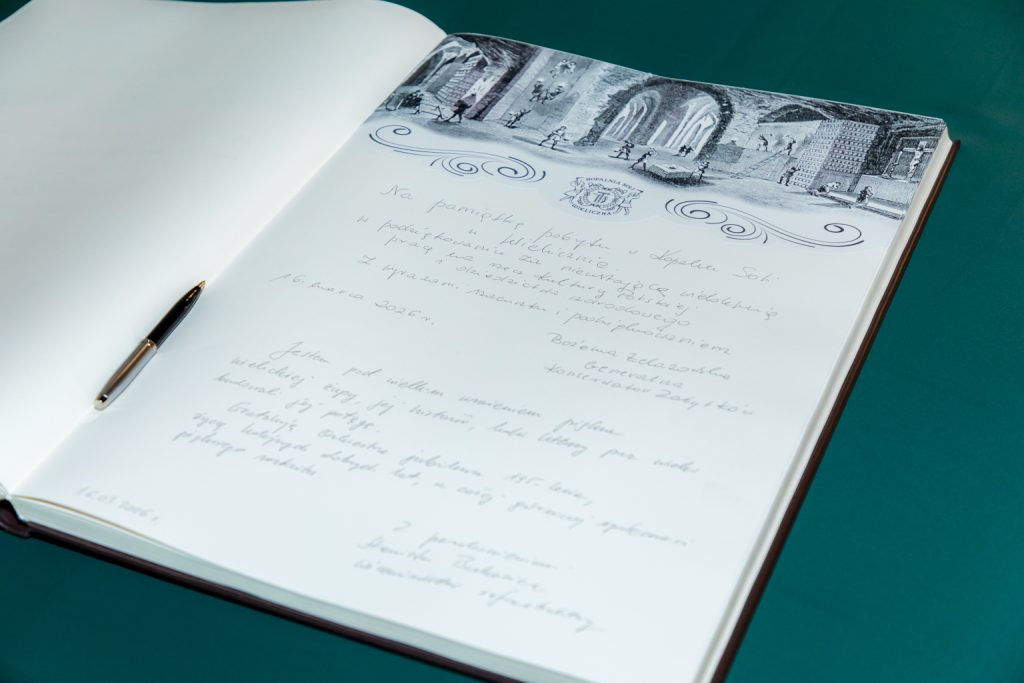 KOPALNIA SOLI
WIELICZNA
Na pamiątkę pobytu w Kopalni Soli
w Wieliczce.
W podziękowaniu za nieustającą wieloletnią
pracę na rzecz Kultury Polskiej
i dziedzictwa narodowego
Z wyrazami szacunku i podziękowaniem
16. marca 2026 r.
Bożena Żelazowska
Generalna
Konserwator Zabytków
Jestem pod wielkim wrażeniem piękna
wielickiej żupy, jej historii, ludzi którzy przez wieki
budowali jej potęgę.
Gratuluję Orkiestrze jubileuszu 195-lecia,
życzę kolejnych dobrych lat, a całej górniczej społeczności
16.03.2026 r.
Z pozdrowieniami
Stanisław
Wiceminister infrastruktury